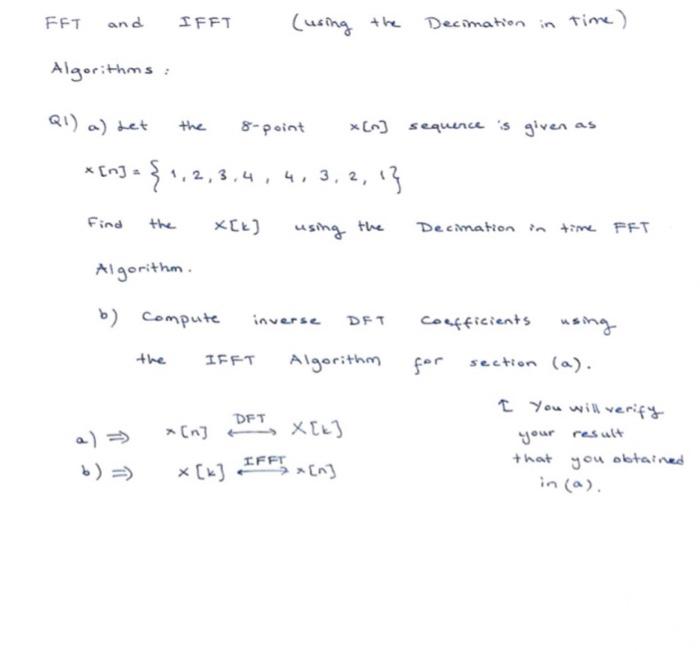 FFT and IFFT (using the Decimation in time)
Algorithms :
Q1) a) Let the 8-point x[n] sequence is given as
x[n] = { 1, 2, 3, 4, 4, 3, 2, 1}
Find the X[k] using the Decimation in time FFT
Algorithm.
b) Compute inverse DFT Coefficients using
the IFFT Algorithm for section (a).
↑ You will verify
your result
that you obtained
in (a).
a) ⇒ x[n] ⟷ DFT X[k]
b) ⇒ X[k] ⟷ IFFT x[n]